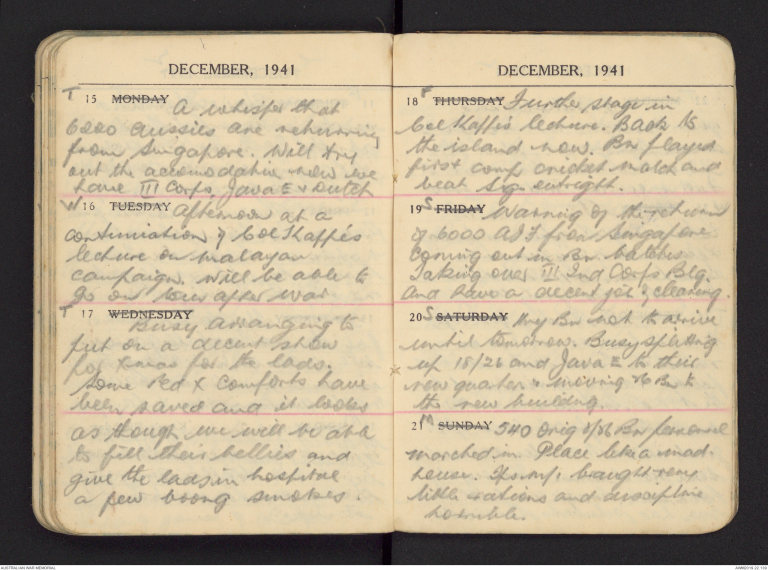 DECEMBER, 1941
T 15 MONDAY A whisper that
6000 Aussies are returning
from Singapore. Will try
out the accomodation now we
have III Corps, Java E & Dutch
W 16 TUESDAY Afternoon at a
continuation of Col Kappe's
lecture on Malayan
campaign. Will be able to
go on tour after war
T 17 WEDNESDAY
Busy arranging to
put on a decent show
for Xmas for the lads.
Some Red X Comforts have
been saved and it looks
as though we will be able
to fill their bellies and
give the lads in hospital
a few boong smokes.
DECEMBER, 1941
18 F THURSDAY Further stage in
Col Kappe's lecture. Back to
the island now. Bn played
first comp cricket match and
beat Sigs outright.
19 S FRIDAY Warning of the return
of 6000 AIF from Singapore
coming out in Bn batches
Taking over III Ind Corps Blg.
and have a decent job of clearing.
20 S SATURDAY Bn not to arrive
until tomorrow. Busy splitting
up 18/26 and Java E to their
new quarters & moving Bn to
the new building.
21 M SUNDAY 540 Orig 2/26 Bn personnel
marched in. Place like a mad
house. brought very
little rations and discipline
horrible.
AUSTRALIAN WAR MEMORIAL